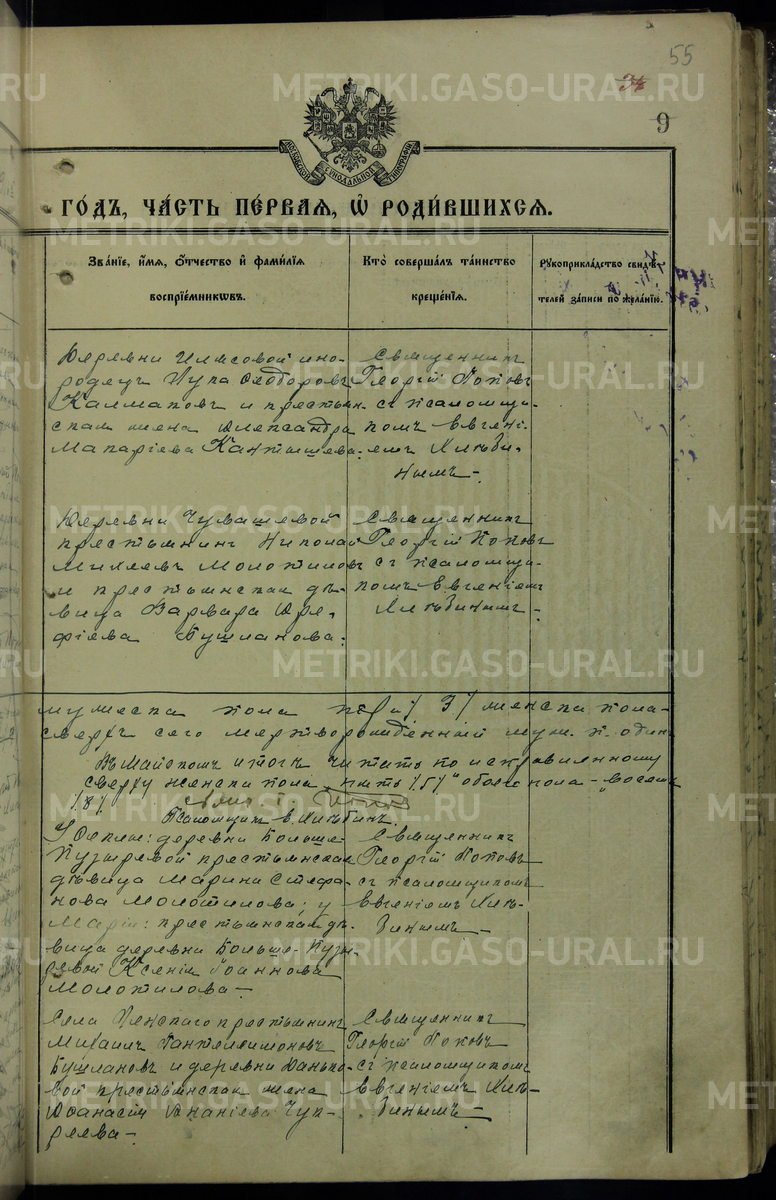 55
34
9
МОСКОВСКОЙ СѴНОДАЛЬНОЙ ТИПОГРАФІИ
ГО́ДЪ, ЧА́СТЬ ПЕ́РВАЯ, Ѡ҆ РОДИ́ВШИХСЯ.
Зва́нїе, и҆́мя, ѻ҆́тчество и҆ фами́лїя
воспрїе́мникѡвъ.
Кто̀ соверша́лъ та́инство
креще́нїя.
Рꙋкоприкла́дство свидѣ́-
телей за́писи по жела́нїю.
Деревни Илясовой ино-
родецъ Лука Ѳеодоровъ
Калмаковъ и крестьян-
ская жена Александра
Макаріева Кантышева.
Священникъ
Георгій Поповъ
съ псаломщи-
комъ Евгені-
емъ Хлѣби-
нымъ.
Деревни Чувашевой
крестьянинъ Николай
Михеевъ Молотиловъ
и крестьянская дѣ-
вица Варвара Аре-
фіева Бушланова.
Священникъ
Георгій Поповъ
съ псаломщи-
комъ Евгеніемъ
Хлѣбинымъ.
мужеска пола /3/ женска пола
сверхъ сего мертворожденный муж. п. одинъ
Въ майскомъ итогѣ читать по исправленному
сверху женска пола "пять /5/" обоего пола - "восемь
/8/
Псаломщикъ Е. Хлѣбинъ
деревни Больше-
Пузыревой крестьянская
дѣвица Марина Стефа-
нова Молотилова; у
Маріи: крестьянская дѣ-
вица деревни Больше-Пузы-
ревой Ксенія Іоаннова
Молотилова.
Священникъ
Георгій Поповъ
съ псаломщикомъ
Евгеніемъ Хлѣ-
бинымъ.
Села крестьянинъ
Михаилъ Пантелеимоновъ
Бушлановъ и деревни Данько-
вой крестьянская жена
Аѳанасія Ананіева Чуп-
реева.
Священникъ
Георгій Поповъ
съ псаломщикомъ
Евгеніемъ Хлѣ-
бинымъ.
METRIKI.GASO-URAL.RU